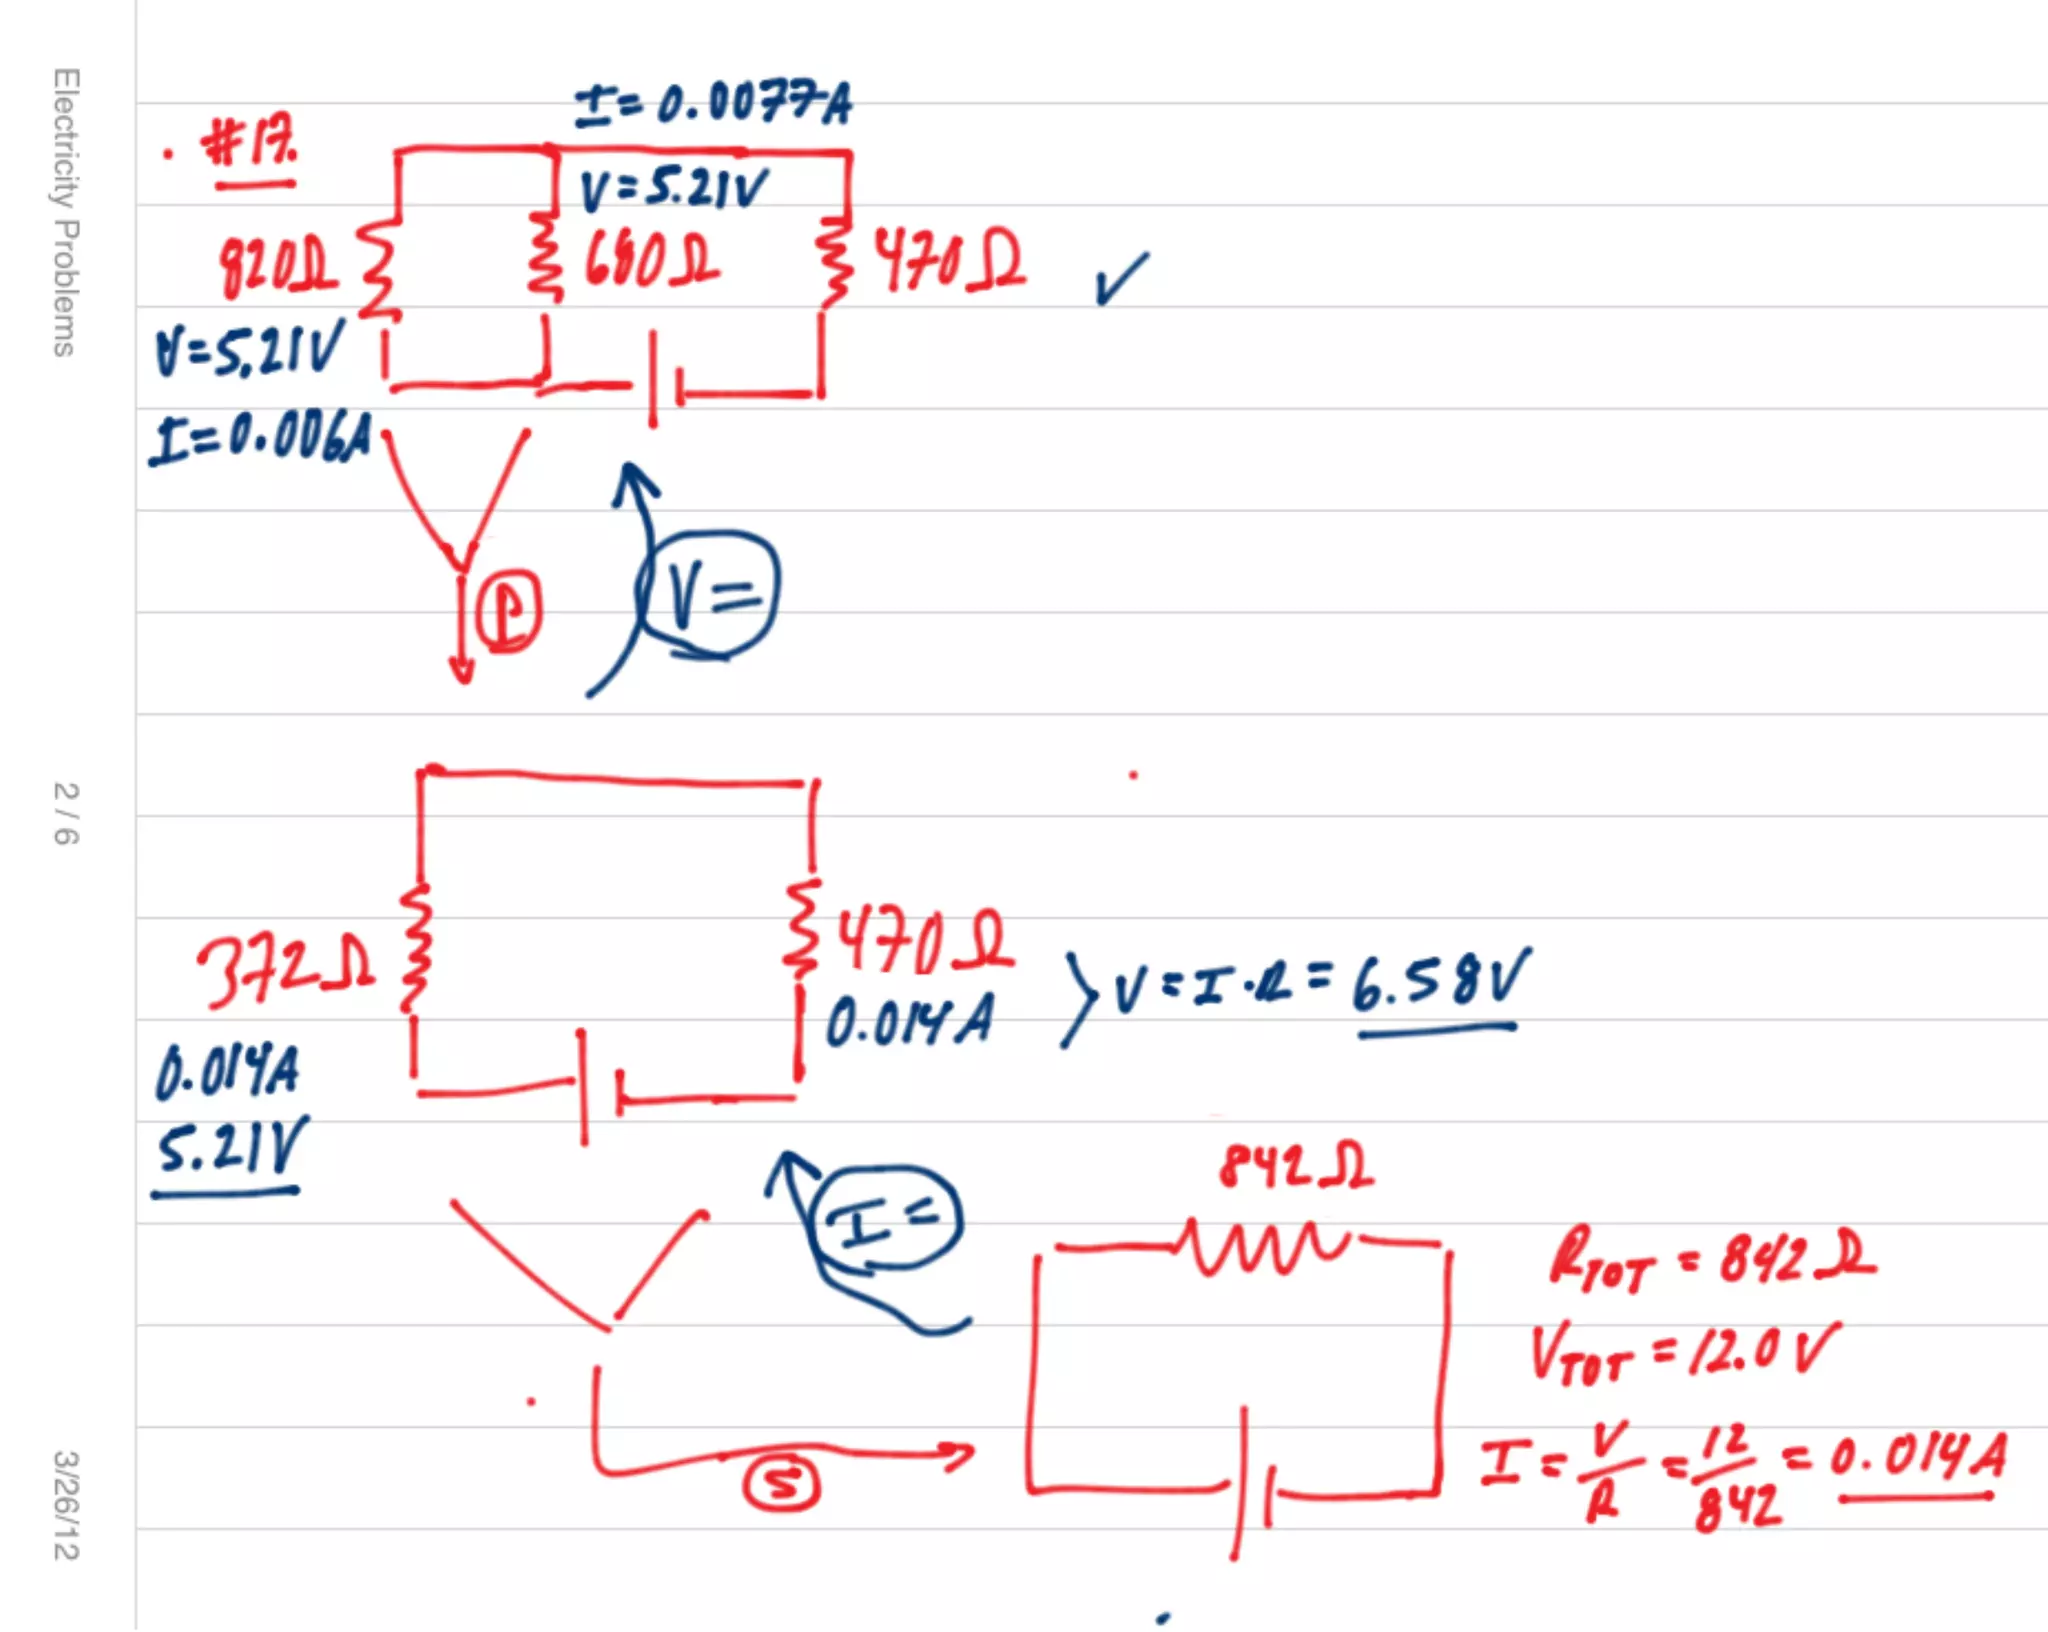 Electricity Problems
2 / 6
3/26/12
#17.
I = 0.0077A
V = 5.21V
820Ω
680Ω
470Ω
✓
V = 5.21V
I = 0.006A
P
V =
372Ω
470Ω
0.014A
V = I · R = 6.58V
0.014A
5.21V
I =
842Ω
S
RTOT = 842Ω
VTOT = 12.0 V
I = V/R = 12/842 = 0.014A